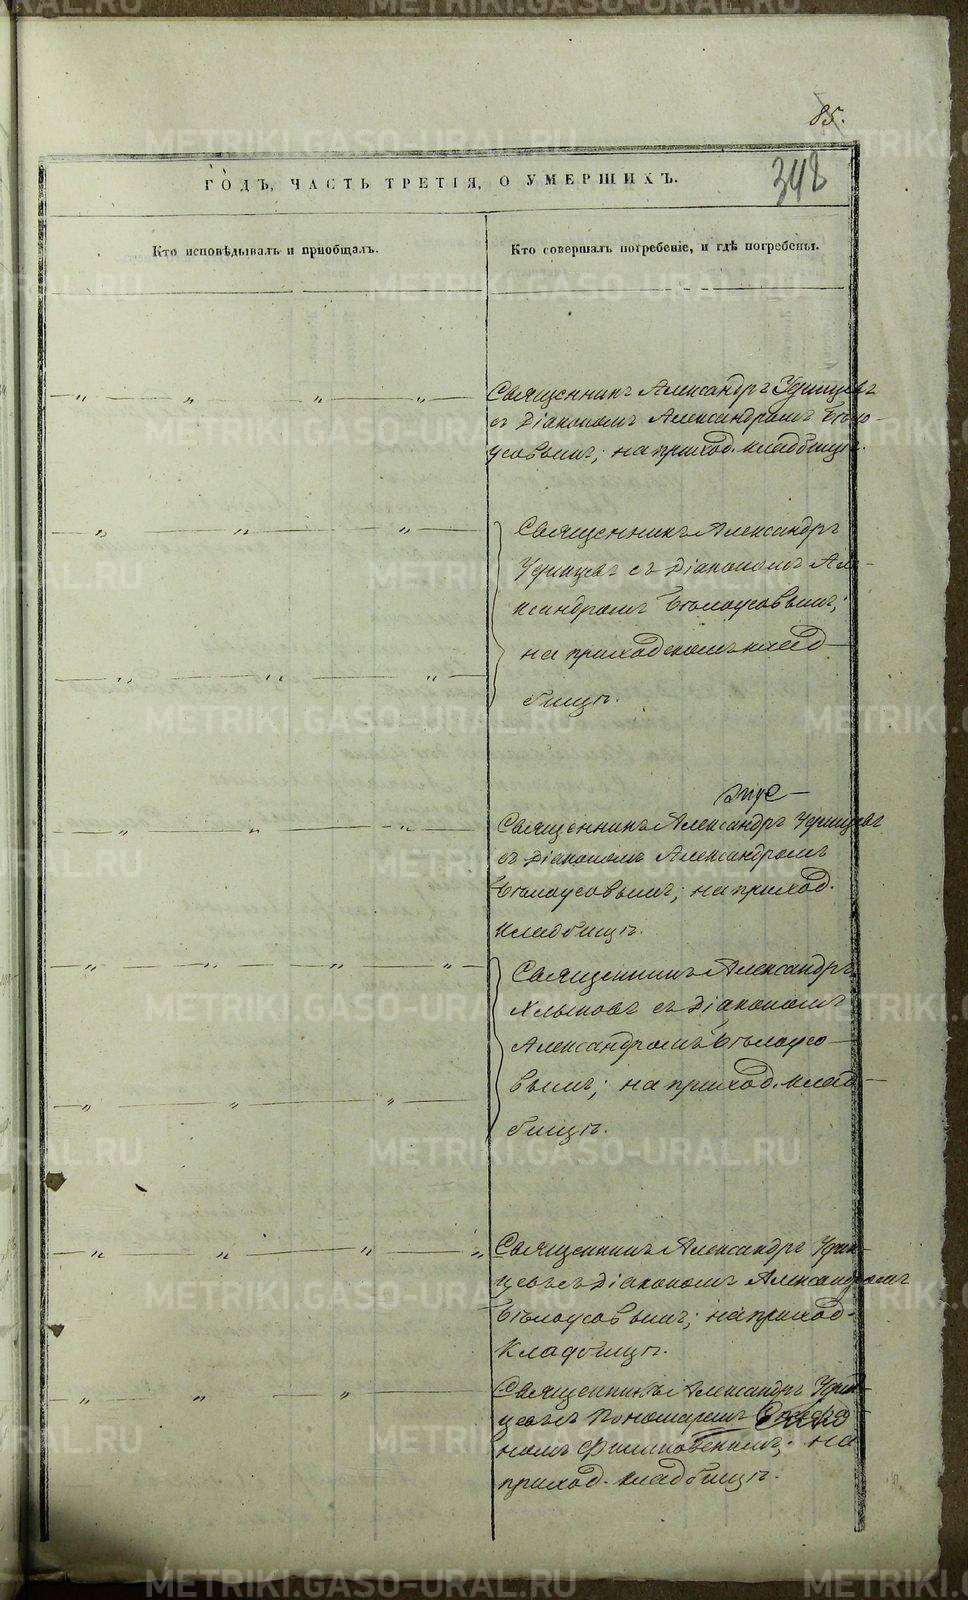 85.
342
ГОДЪ, ЧАСТЬ ТРЕТІЯ, О УМЕРШИХЪ.
Кто исповѣдывалъ и пріобщалъ.
Кто совершалъ погребеніе, и гдѣ погребены.
— „ — „ — „ — „ —
Священникъ Александръ Удинцевъ
съ Діакономъ Александромъ Бѣло-
усовымъ; на приход. кладбищѣ.
— „ — „ — „ —
Священникъ Александръ
Удинцевъ съ Діакономъ Але-
ксандромъ Бѣлоусовымъ;
на приходскомъ клад-
— „ — „ — „ —
бищѣ.
Священникъ Александръ Удинцевъ
— „ — „ — „ —
съ Діакономъ Александромъ
Бѣлоусовымъ; на приход.
кладбищѣ.
— „ — „ — „ — „ —
Священникъ Александръ
Хлыновъ съ Діакономъ
Александромъ Бѣлоусо-
вымъ; на приход. клад-
— „ — „ — „ —
бищѣ.
— „ — „ — „ — „
Священникъ Александръ Удин-
цевъ съ Діакономъ Александромъ
Бѣлоусовымъ; на приход.
кладбищѣ.
— „ — „ — „ —
Священникъ Александръ Удин-
цевъ съ Пономаремъ
на
приход. кладбищѣ.
METRIKI.GASO-URAL.RU